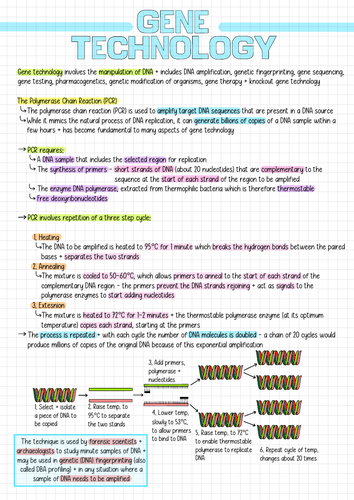 GENE
TECHNOLOGY
Gene technology involves the manipulation of DNA + includes DNA amplification, genetic fingerprinting, gene sequencing,
gene testing, pharmacogenetics, genetic modification of organisms, gene therapy + knockout gene technology
The Polymerase Chain Reaction (PCR)
↳The polymerase chain reaction (PCR) is used to amplify target DNA sequences that are present in a DNA source
↳While it mimics the natural process of DNA replication, it can generate billions of copies of a DNA sample within a
few hours + has become fundamental to many aspects of gene technology
→ PCR requires:
↳A DNA sample that includes the selected region for replication
↳The synthesis of primers - short strands of DNA (about 20 nucleotides) that are complementary to the
sequence at the start of each strand of the region to be amplified
↳The enzyme DNA polymerase, extracted from thermophilic bacteria which is therefore thermostable
↳Free deoxyribonucleotides
→ PCR involves repetition of a three step cycle:
1. Heating
↳The DNA to be amplified is heated to 95°C for 1 minute which breaks the hydrogen bonds between the paired
bases + separates the two strands
2. Annealing
↳The mixture is cooled to 50-60°C, which allows primers to anneal to the start of each strand of the
complementary DNA region - the primers prevent the DNA strands rejoining + act as signals to the
polymerase enzymes to start adding nucleotides
3. Extesnion
↳The mixture is heated to 72°C for 1-2 minutes + the thermostable polymerase enzyme (at its optimum
temperature) copies each strand, starting at the primers
→ The process is repeated + with each cycle the number of DNA molecules is doubled - a chain of 20 cycles would
produce millions of copies of the original DNA because of this exponential amplification
1. Select + isolate
a piece of DNA to
be copied
2. Raise temp, to
95°C to separate
the two stands
3. Add primers,
polymerase +
nucleotides
4. Lower temp,
slowly to 53°C,
to allow primers
to bind to DNA
5. Raise temp, to 72°C
to enable thermostable
polymerase to replicate
DNA
6. Repeat cycle of temp,
changes about 20 times
The technique is used by forensic scientists +
archaeologists to study minute samples of DNA +
may be used in genetic (DNA) fingerprinting (also
called DBA profiling) + in any situation where a
sample of DNA needs to be amplified